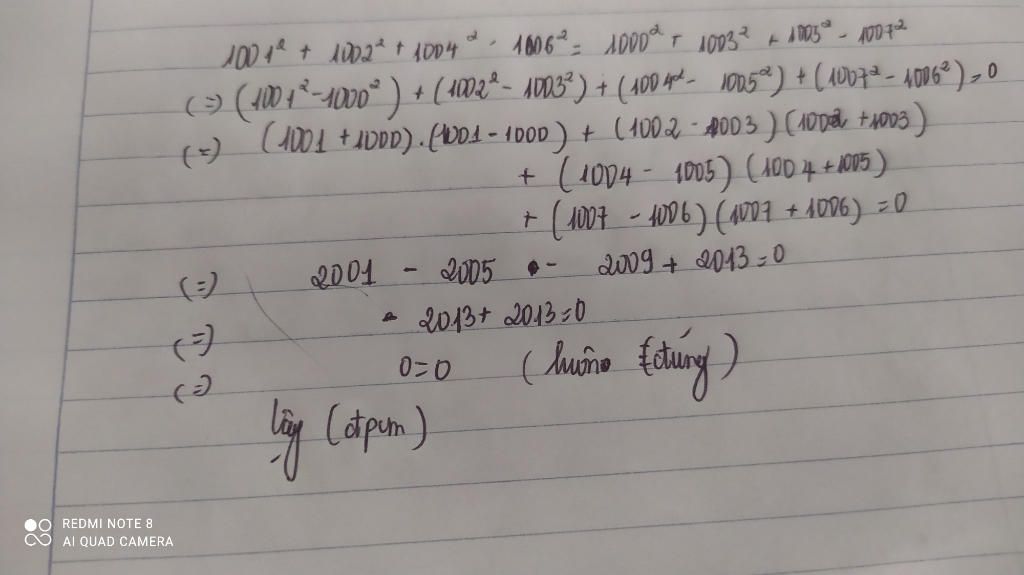 1001² + 1002² + 1004² - 1006² = 1000² + 1003² + 1005² - 1007²
(=) (1001² - 1000²) + (1002² - 1003²) + (1004² - 1005²) + (1007² - 1006²) = 0
(=) (1001 + 1000).(1001 - 1000) + (1002 - 1003)(1002 + 1003)
+ (1004 - 1005)(1004 + 1005)
+ (1007 - 1006)(1007 + 1006) = 0
(=) 2001 - 2005 - 2009 + 2013 = 0
(=) - 2013 + 2013 = 0
(=) 0 = 0 (luôn đúng)
Vậy (đpcm)
REDMI NOTE 8
AI QUAD CAMERA